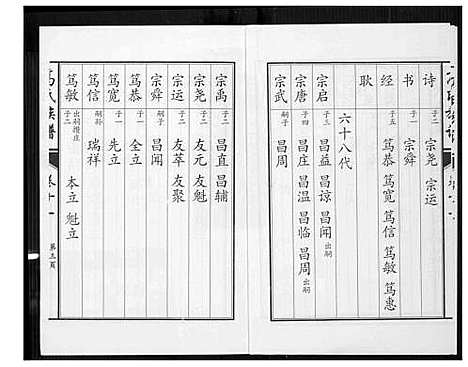 诗 子二 宗尧 宗运
书 子一 宗舜
经 子五 笃恭 笃宽 笃信 笃敏 笃惠
耿
六十八代
宗启 子三 昌益 昌谅 昌闻 出嗣
宗唐 子四 昌庄 昌温 昌临 昌周 出嗣
宗武 嗣子 昌周
宗禹 子二 昌直 昌辅
宗尧 子二 友元 友魁
宗运 子二 友萃 友聚
宗舜 嗣子 昌闻
笃恭 子一 全立
笃宽 子一 先立
笃信 嗣孙 瑞祥
笃敏 子二 本立 魁立
氏族谱
卷十一
第五页